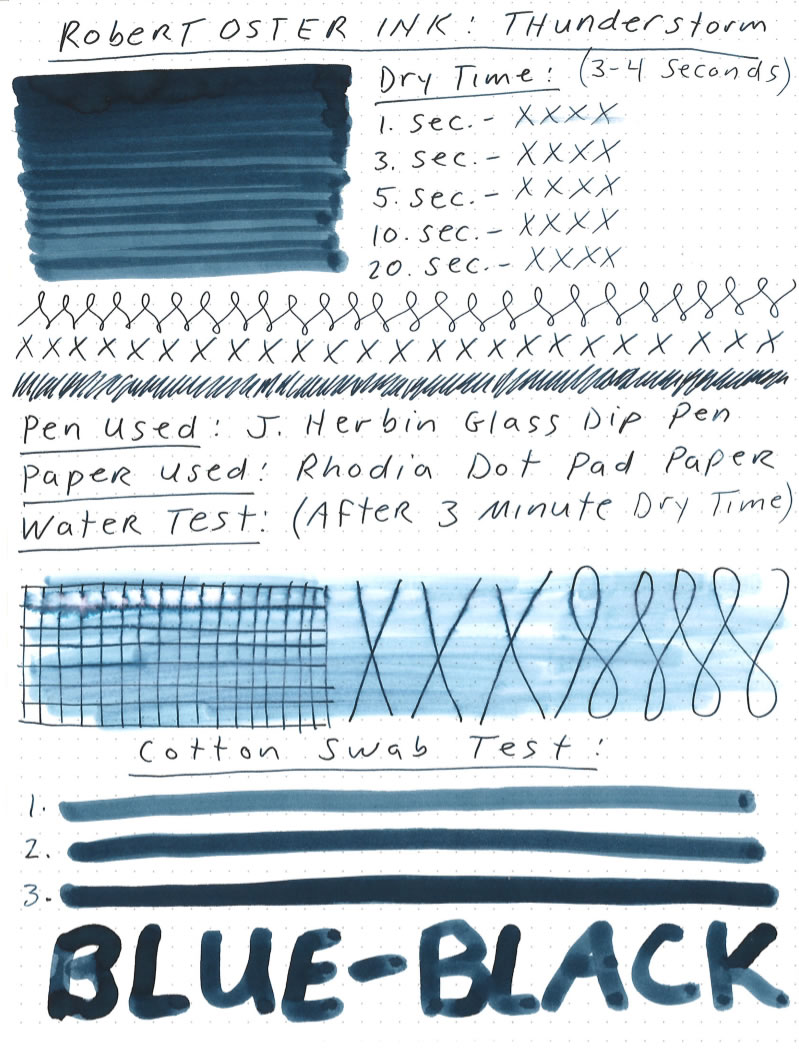 Robert Oster Ink: Thunderstorm
Dry Time: (3-4 Seconds)
1. sec. - XXXX
3. sec. - XXXX
5. sec. - XXXX
10. sec. - XXXX
20. sec. - XXXX
X X X X X X X X X X X X X X X X X X X X X X X X
Pen Used: J. Herbin Glass Dip Pen
Paper Used: Rhodia Dot Pad Paper
Water Test: (After 3 Minute Dry Time)
X X X
Cotton Swab Test:
1.
2.
3.
BLUE-BLACK